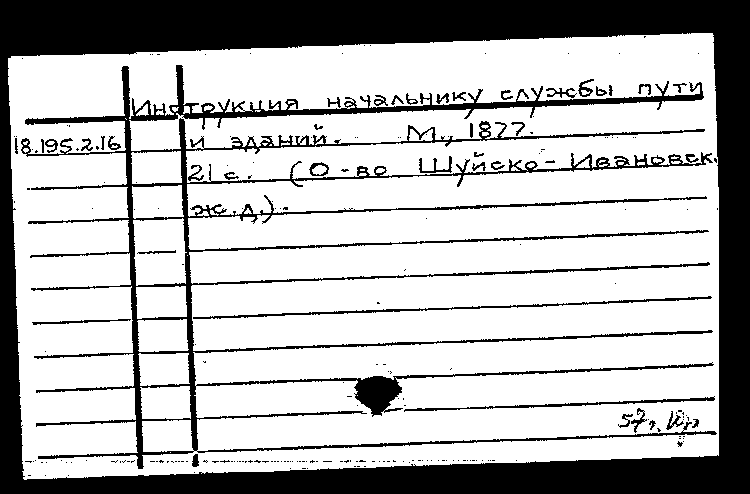 Инструкция начальнику службы пути
18.195.2.16 и зданий. М., 1877.
21 с. (О-во Шуйско-Ивановск.
ж.д.).
57г.